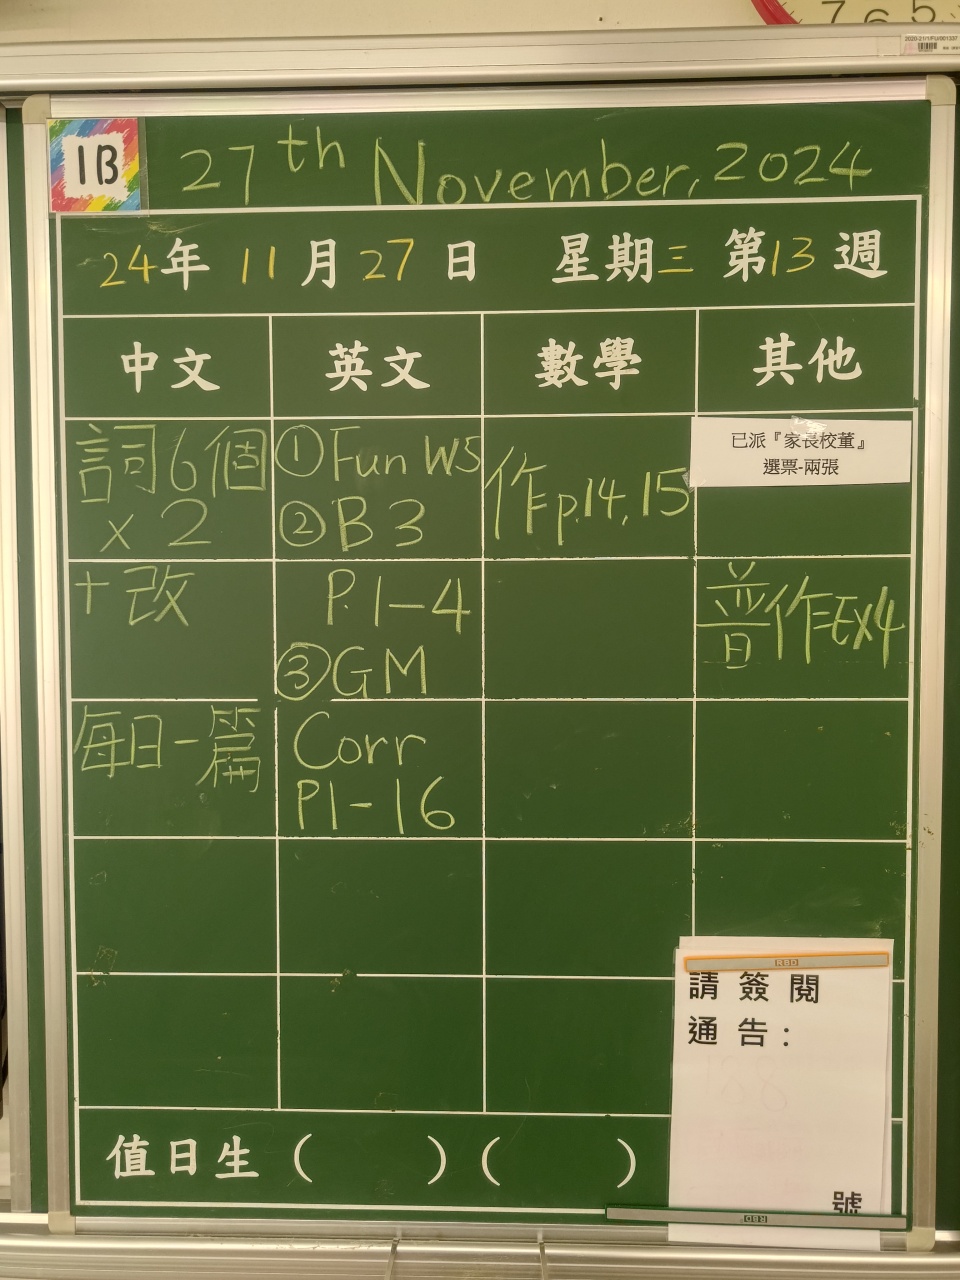 7 6 5
1B
27th November, 2024
24年 11月 27日 星期三 第13週
中文 英文 數學 其他
詞6個
x 2
+ 改
每日一篇
① Fun WS
② B 3
P.1-4
③ GM
Corr
P1-16
作p.14,15
已派『家長校董』
選票-兩張
普作Ex4
RBD
請簽閱
通告:
號
值日生 ( ) ( )
RBD